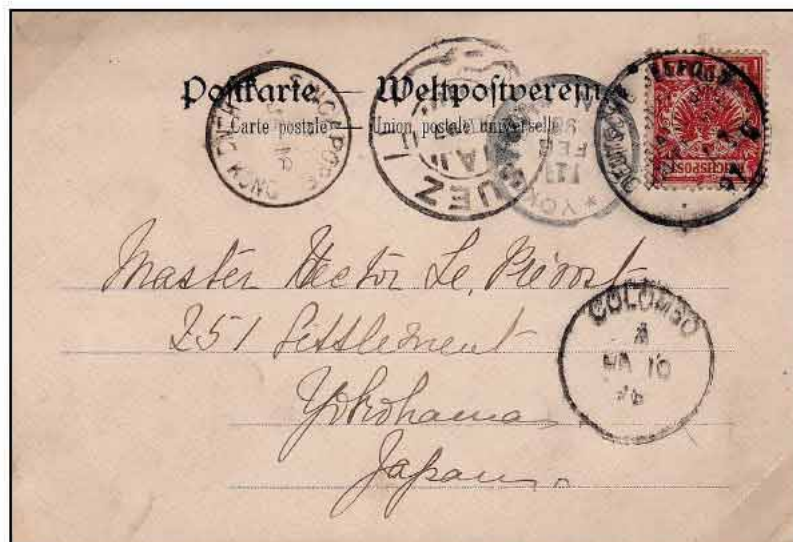 Postkarte — Weltpostverein.
Carte postale — Union postale universelle
SUEZ
COLOMBO
REICHSPOST
Master Hector Le Prévost
251 Settlement
Yokohama
Japan